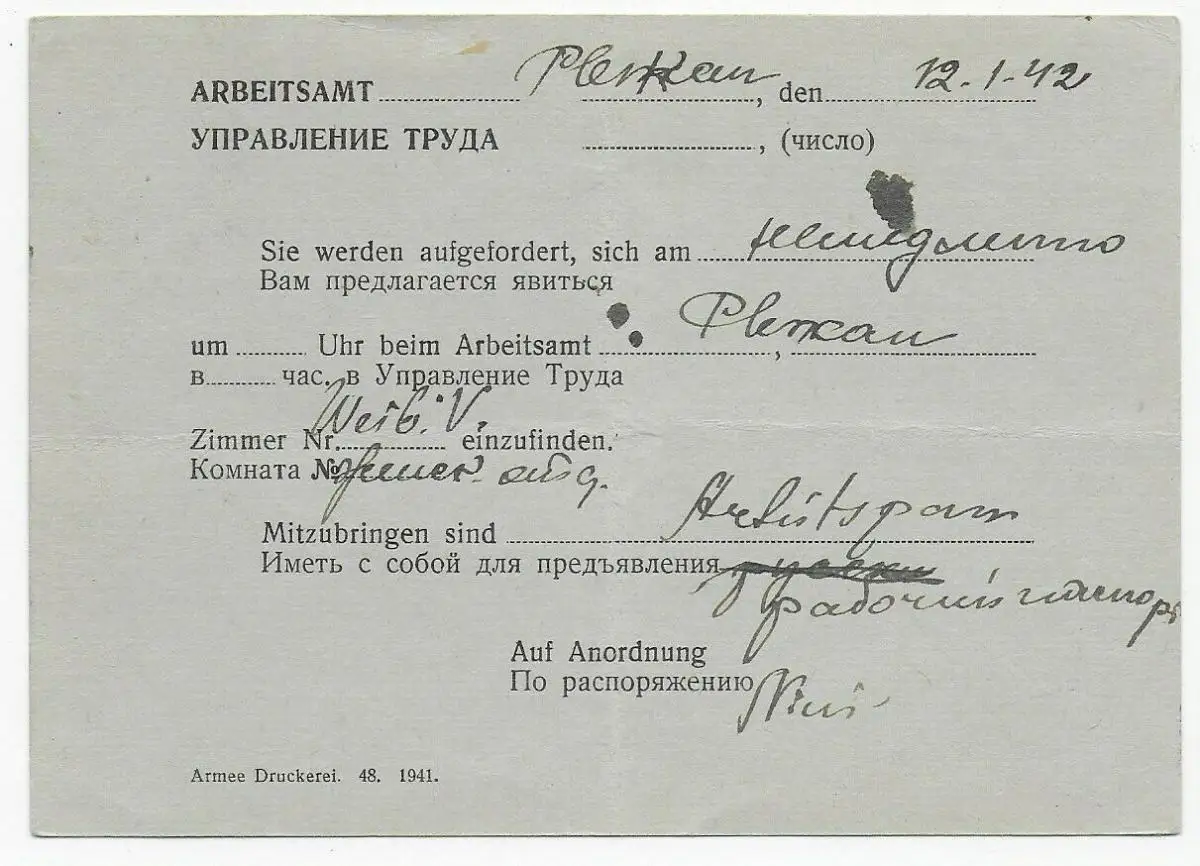 ARBEITSAMT Pleskau, den 12.1.42
УПРАВЛЕНИЕ ТРУДА , (число)
Sie werden aufgefordert, sich am немедленно
Вам предлагается явиться
um Uhr beim Arbeitsamt Pleskau
в час. в Управление Труда
Zimmer Nr. Weib. V. einzufinden.
Комната № женск. отд.
Mitzubringen sind Arbeitspass
Иметь с собой для предъявления
рабочий паспорт
Auf Anordnung
По распоряжению
Armee Druckerei. 48. 1941.